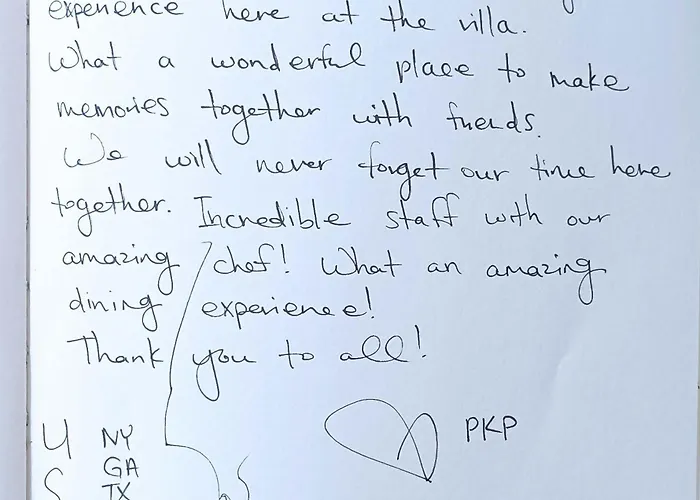 experience here at the villa.
What a wonderful place to make
memories together with friends.
We will never forget our time here
together. Incredible staff with our
amazing chef! What an amazing
dining experience!
Thank you to all!
PKP
U NY
GA
S TX